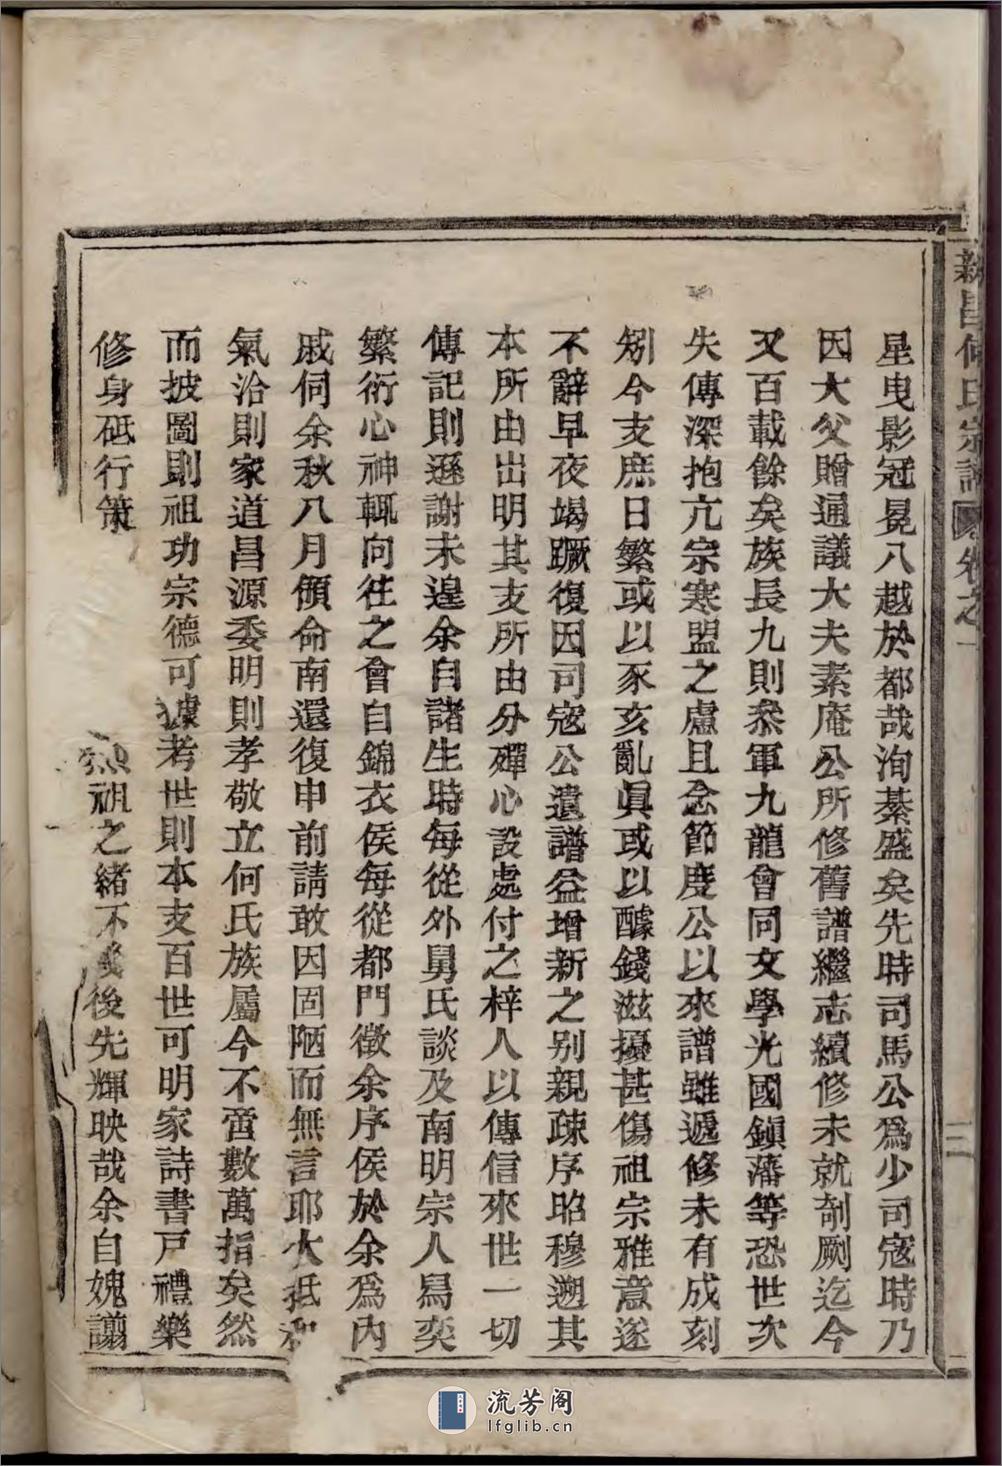 新昌何氏宗譜 卷之一
星曳影冠冕八越於都哉洵綦盛矣先時司馬公爲少司寇時乃
因大父贈通議大夫素庵公所修舊譜繼志續修未就剞劂迄今
又百載餘矣族長九則叅軍九龍會同文學光國鎮藩等恐世次
失傳深抱亢宗寒盟之慮且念節度公以來譜雖遞修未有成刻
矧今支庶日繁或以豕亥亂眞或以醵錢滋擾甚傷祖宗雅意遂
不辭早夜竭蹶復因司寇公遺譜益增新之别親疎序昭穆遡其
本所由出明其支所由分殫心設處付之梓人以傳信來世一切
傳記則遜謝未遑余自諸生時每從外舅氏談及南明宗人舄奕
繁衍心神輒向徃之會自錦衣侯每從都門徵余序侯於余爲内
戚伺余秋八月頒命南還復申前請敢因固陋而無言耶大抵和
氣洽則家道昌源委明則孝敬立何氏族屬今不啻數萬指矣然
而披圖則祖功宗德可據考世則本支百世可明家詩書戸禮樂
修身砥行策祖之緒不後先輝映哉余自媿譾
流芳阁
lfglib.cn